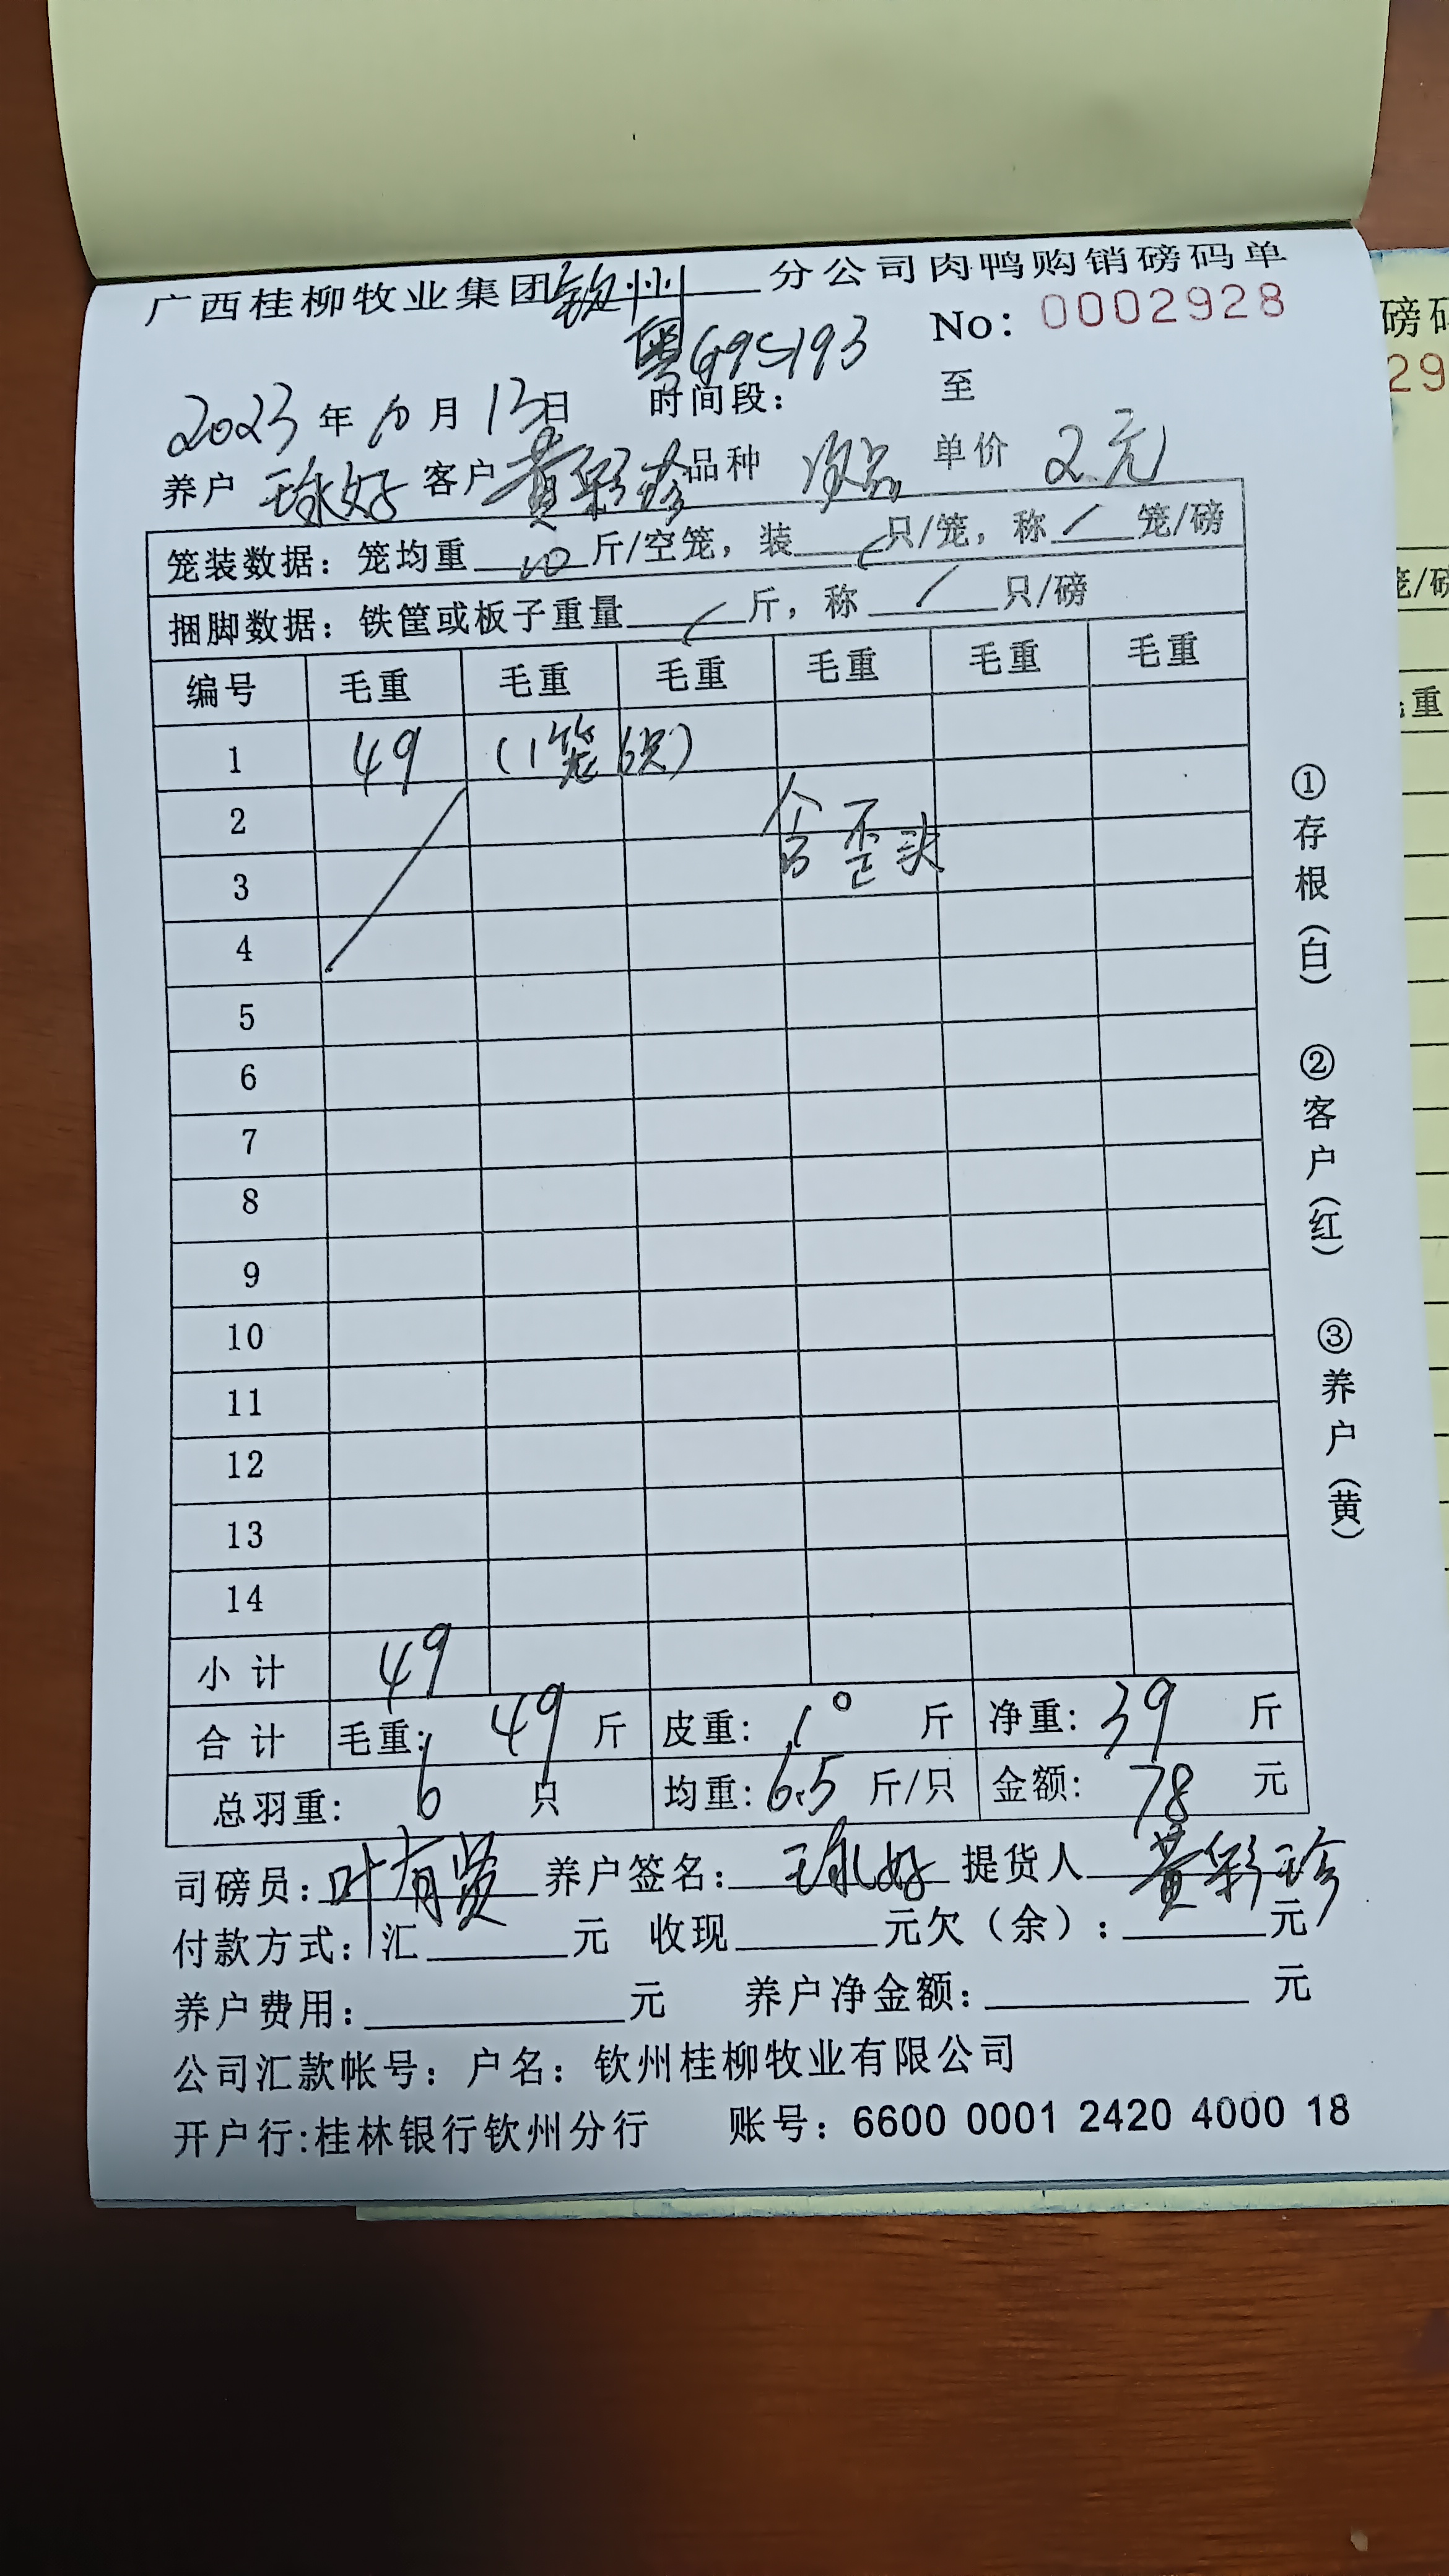 广西桂柳牧业集团钦州分公司肉鸭购销磅码单
No: 0002928
粤G95193
2023年10月13日 时间段: 至
养户 球好 客户 黄彩珍 品种 次品 单价 2元
笼装数据: 笼均重 10 斤/空笼, 装 / 只/笼, 称 / 笼/磅
捆脚数据: 铁筐或板子重量 / 斤, 称 / 只/磅
编号 毛重 毛重 毛重 毛重 毛重 毛重
1 49 (1笼6只)
2
含歪头
3
4
5
6
7
8
9
10
11
12
13
14
小计 49
合计 毛重: 49 斤 皮重: 10 斤 净重: 39 斤
总羽重: 6 只 均重: 6.5 斤/只 金额: 78 元
司磅员: 叶有贤 养户签名: 球好 提货人 黄彩珍
付款方式: 汇 元 收现 元欠(余): 元
养户费用: 元 养户净金额: 元
公司汇款帐号: 户名: 钦州桂柳牧业有限公司
开户行:桂林银行钦州分行 账号: 6600 0001 2420 4000 18
①存根(白) ②客户(红) ③养户(黄)
磅码
29
笼/磅
毛重